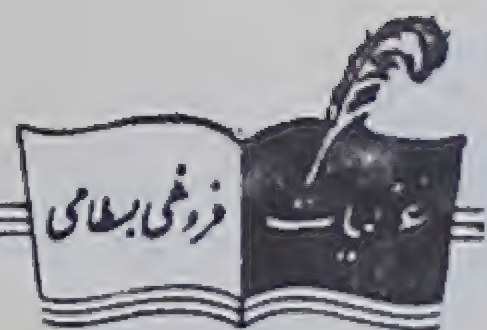 غزلیات فروغی بسطامی